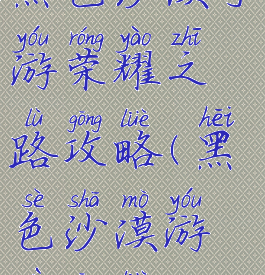 yóu róng yào zhī
游荣耀之
lù gōng lüè hēi
路攻略(黑
sè shā mò yóu
色沙漠游